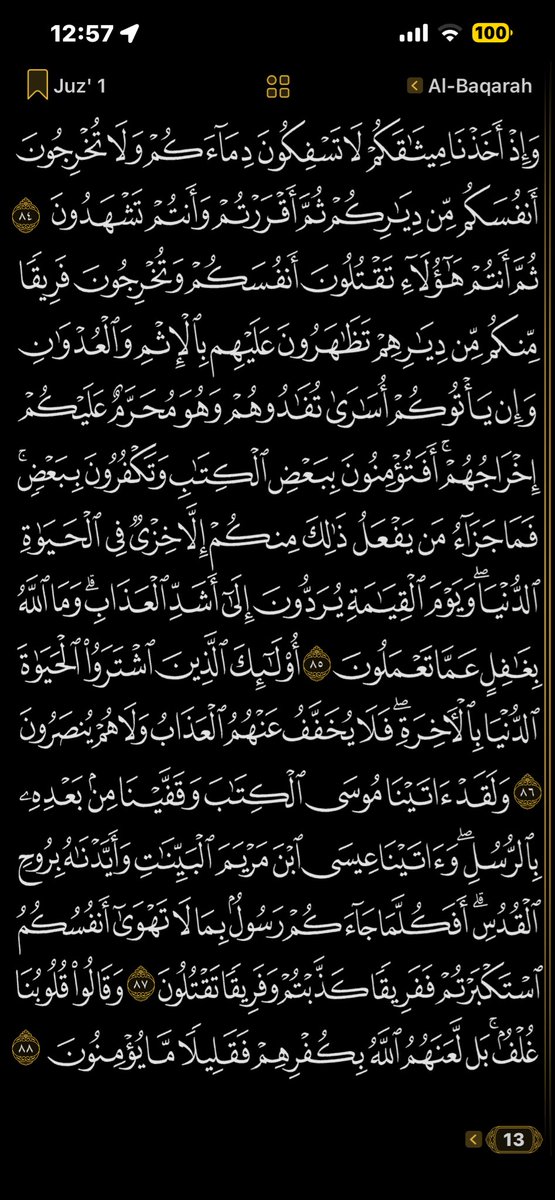 12:57
100
Juz' 1
Al-Baqarah
وَإِذْ أَخَذْنَا مِيثَٰقَكُمْ لَا تَسْفِكُونَ دِمَآءَكُمْ وَلَا تُخْرِجُونَ
أَنفُسَكُم مِّن دِيَٰرِكُمْ ثُمَّ أَقْرَرْتُمْ وَأَنتُمْ تَشْهَدُونَ ٨٤
ثُمَّ أَنتُمْ هَٰٓؤُلَآءِ تَقْتُلُونَ أَنفُسَكُمْ وَتُخْرِجُونَ فَرِيقًا
مِّنكُم مِّن دِيَٰرِهِمْ تَظَٰهَرُونَ عَلَيْهِم بِٱلْإِثْمِ وَٱلْعُدْوَٰنِ
وَإِن يَأْتُوكُمْ أُسَٰرَىٰ تُفَٰدُوهُمْ وَهُوَ مُحَرَّمٌ عَلَيْكُمْ
إِخْرَاجُهُمْ ۚ أَفَتُؤْمِنُونَ بِبَعْضِ ٱلْكِتَٰبِ وَتَكْفُرُونَ بِبَعْضٍ ۚ
فَمَا جَزَآءُ مَن يَفْعَلُ ذَٰلِكَ مِنكُمْ إِلَّا خِزْىٌ فِى ٱلْحَيَوٰةِ
ٱلدُّنْيَا ۖ وَيَوْمَ ٱلْقِيَٰمَةِ يُرَدُّونَ إِلَىٰٓ أَشَدِّ ٱلْعَذَابِ ۗ وَمَا ٱللَّهُ
بِغَٰفِلٍ عَمَّا تَعْمَلُونَ ٨٥ أُو۟لَٰٓئِكَ ٱلَّذِينَ ٱشْتَرَوُا۟ ٱلْحَيَوٰةَ
ٱلدُّنْيَا بِٱلْءَاخِرَةِ ۖ فَلَا يُخَفَّفُ عَنْهُمُ ٱلْعَذَابُ وَلَا هُمْ يُنصَرُونَ
٨٦ وَلَقَدْ ءَاتَيْنَا مُوسَى ٱلْكِتَٰبَ وَقَفَّيْنَا مِنۢ بَعْدِهِۦ
بِٱلرُّسُلِ ۖ وَءَاتَيْنَا عِيسَى ٱبْنَ مَرْيَمَ ٱلْبَيِّنَٰتِ وَأَيَّدْنَٰهُ بِرُوحِ
ٱلْقُدُسِ ۗ أَفَكُلَّمَا جَآءَكُمْ رَسُولٌۢ بِمَا لَا تَهْوَىٰٓ أَنفُسُكُمُ
ٱسْتَكْبَرْتُمْ فَفَرِيقًا كَذَّبْتُمْ وَفَرِيقًا تَقْتُلُونَ ٨٧ وَقَالُوا۟ قُلُوبُنَا
غُلْفٌۢ ۚ بَل لَّعَنَهُمُ ٱللَّهُ بِكُفْرِهِمْ فَقَلِيلًا مَّا يُؤْمِنُونَ ٨٨
13